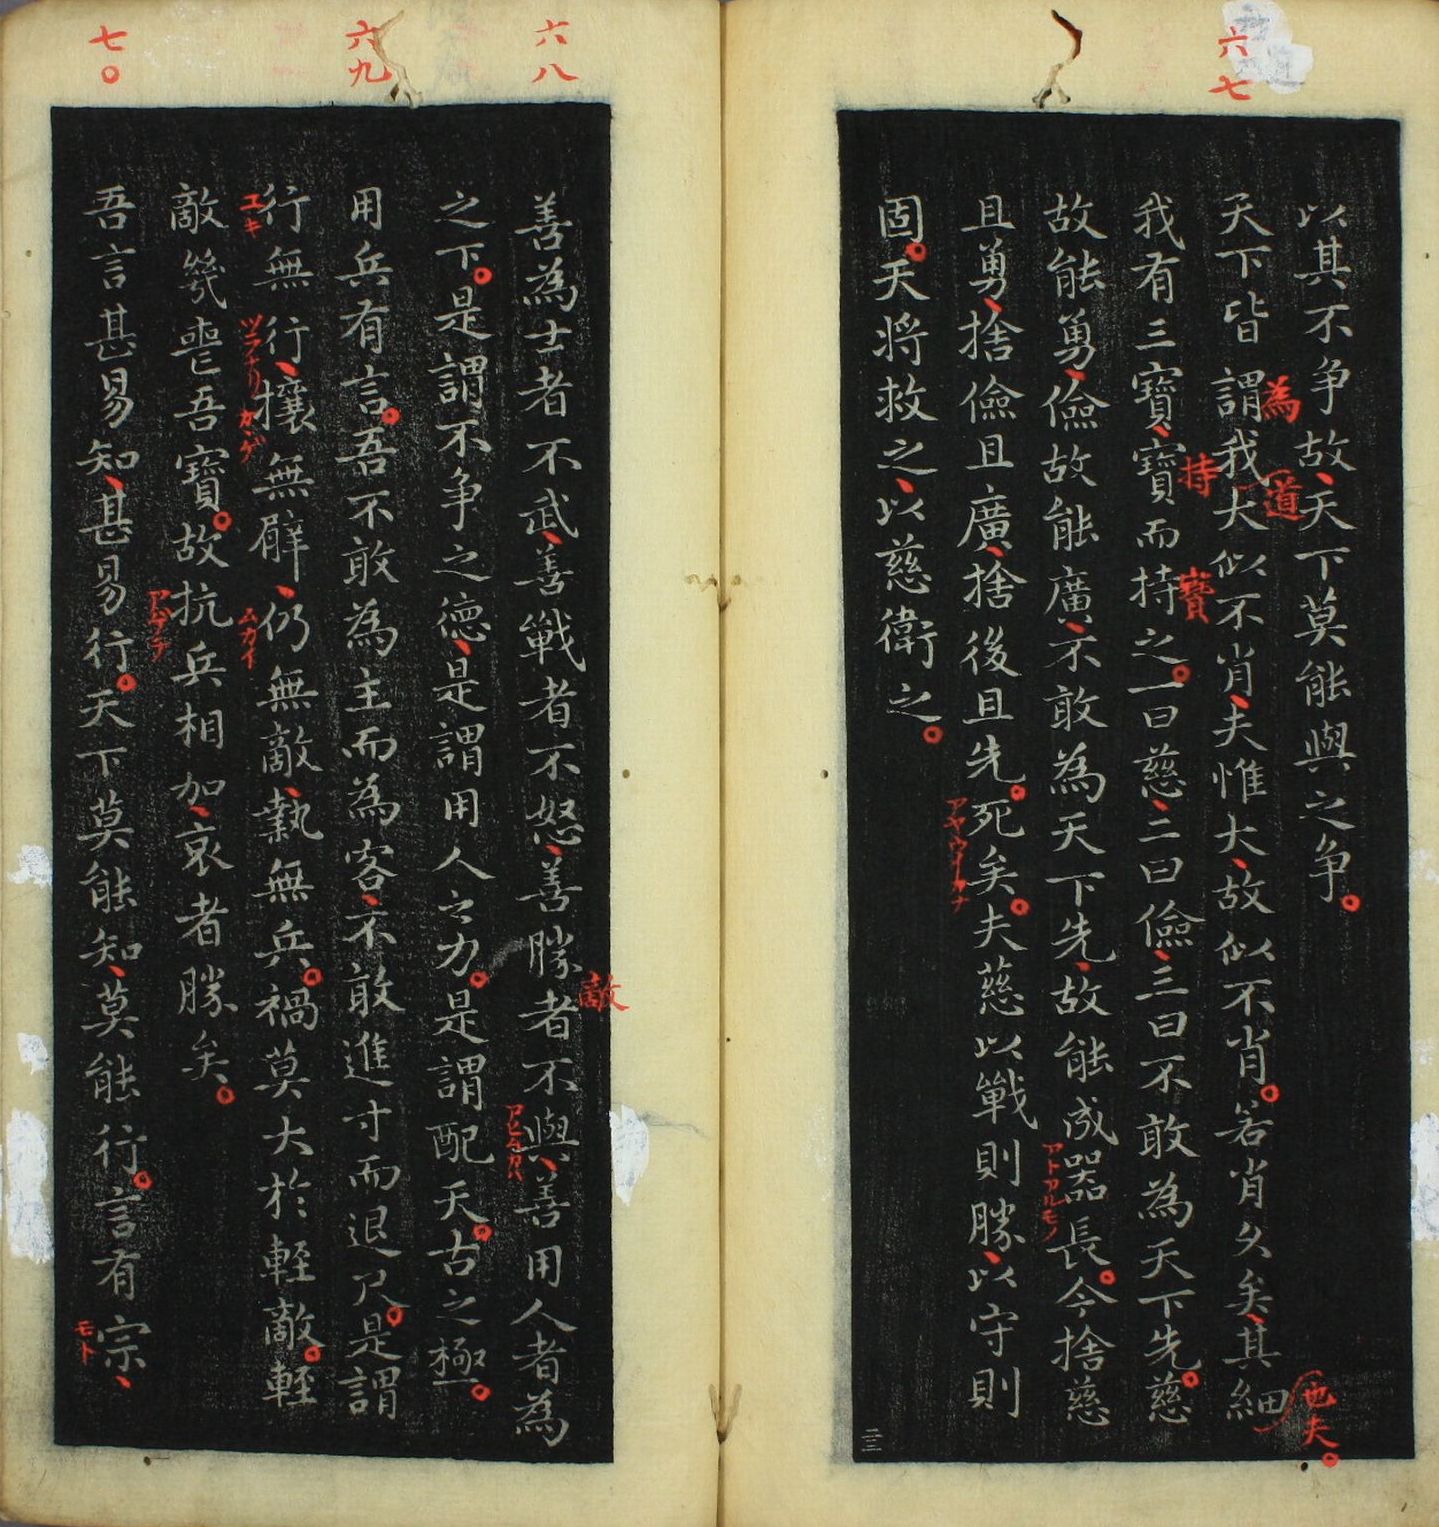 六七
以其不争故、天下莫能與之争。
為
道
天下皆謂我大似不肖、夫惟大、故似不肖。若肖久矣、其細
也夫。
持
寶
我有三寶、寶而持之。一曰慈、二曰儉、三曰不敢為天下先。慈
故能勇、儉故能廣、不敢為天下先、故能成器長。今捨慈
アトアルモノ
且勇、捨儉且廣、捨後且先。死矣。夫慈以戰則勝、以守則
固。天将救之、以慈衛之。
三三
六八
敵
善為士者不武、善戰者不怒、善勝者不與、善用人者為
之下。是謂不争之德、是謂用人之力。是謂配天。古之極。
六九
用兵有言。吾不敢為主而為客、不敢進寸而退尺。是謂
行無行、攘無臂、仍無敵、執無兵。禍莫大於輕敵。輕
ツラナリ
ムカイ
敵幾喪吾寶。故抗兵相加、哀者勝矣。
アゲテ
七〇
吾言甚易知、甚易行。天下莫能知、莫能行。言有宗、
モト